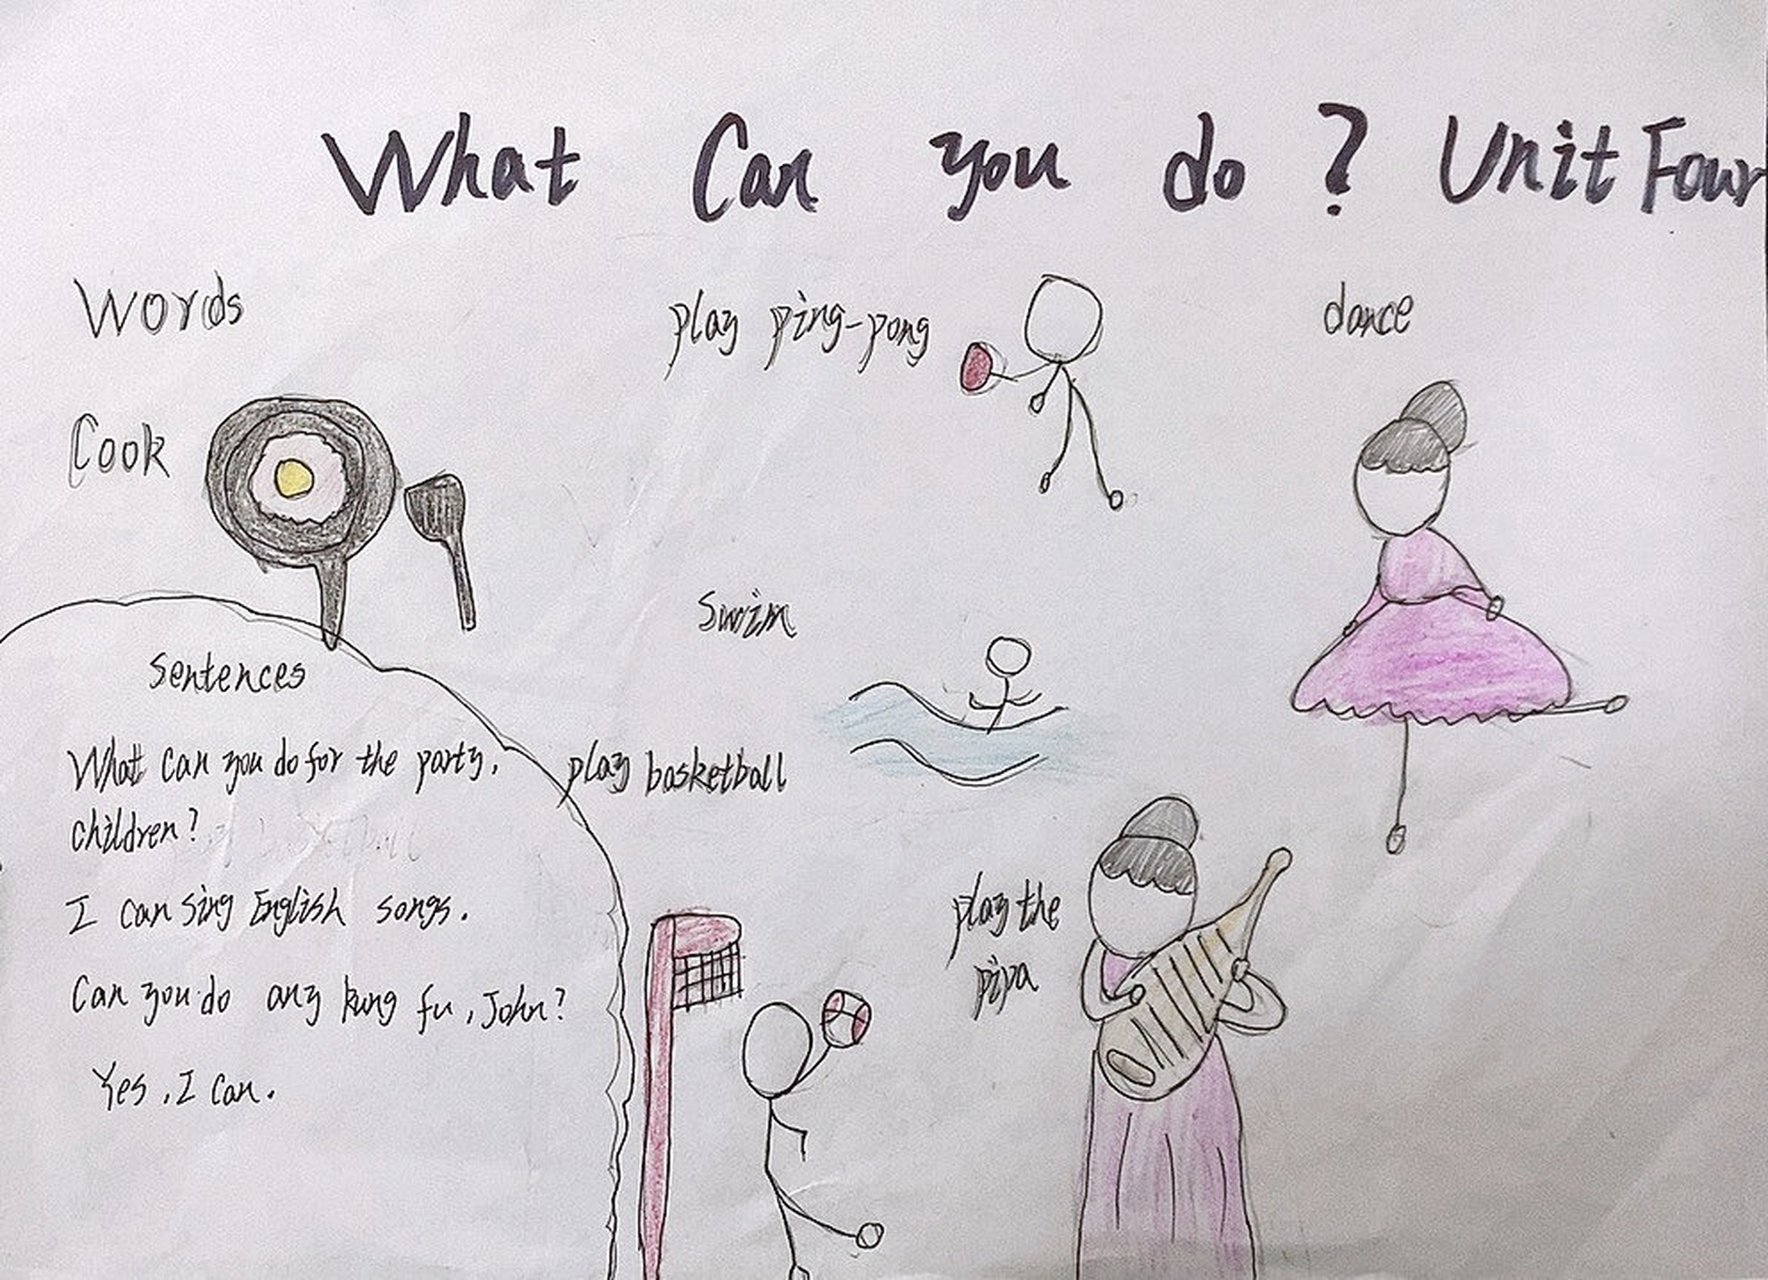 What Can you do? Unit Four
Words
play ping-pong
dance
Cook
swim
play basketball
play the
pipa
Sentences
What can you do for the party,
children?
I can sing English songs.
Can you do any kung fu, John?
Yes, I can.